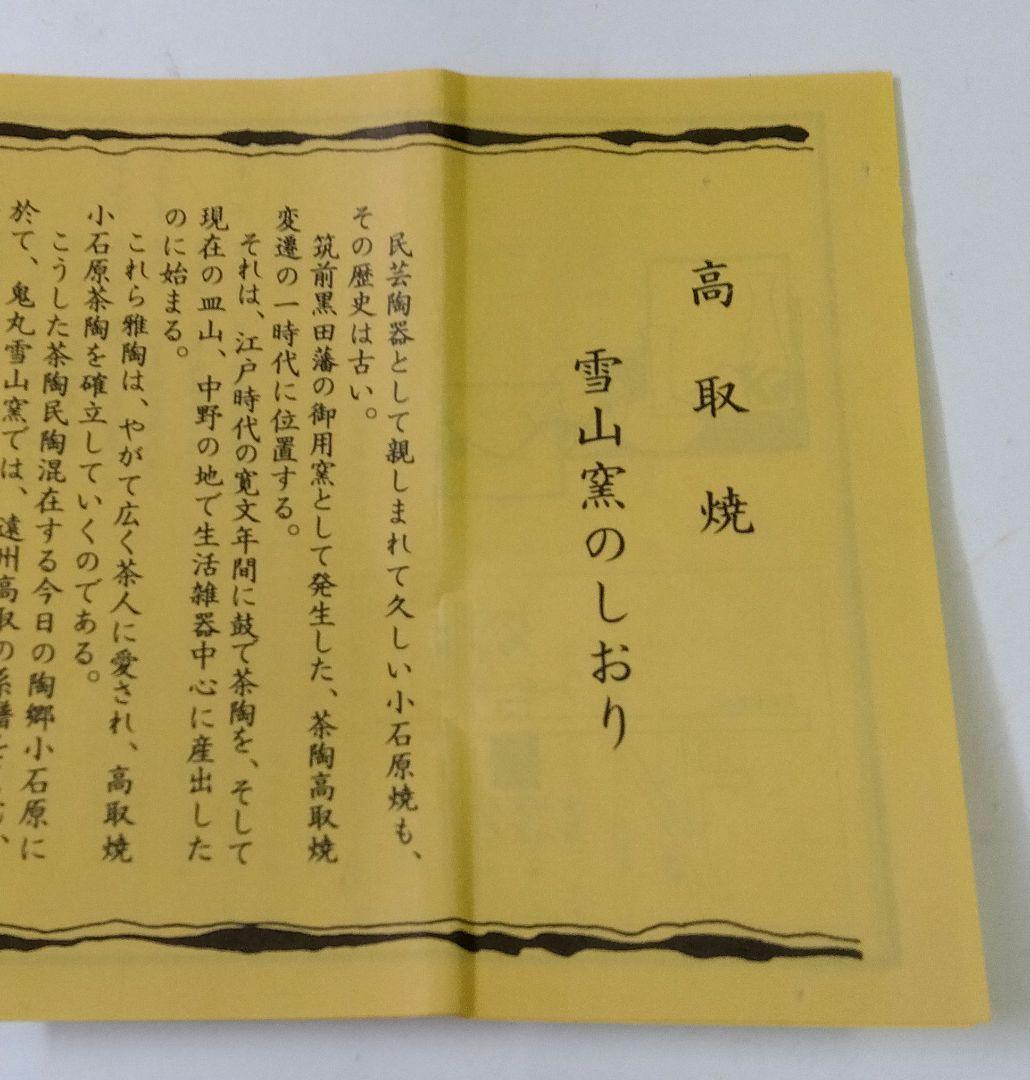 高取焼
雪山窯のしおり
民芸陶器として親しまれて久しい小石原焼も、
その歴史は古い。
筑前黒田藩の御用窯として発生した、茶陶高取焼
変遷の一時代に位置する。
それは、江戸時代の寛文年間に鼓で茶陶を、そして
現在の皿山、中野の地で生活雑器中心に産出した
のに始まる。
これら雅陶は、やがて広く茶人に愛され、高取焼
小石原茶陶を確立していくのである。
こうした茶陶民陶混在する今日の陶郷小石原に
於て、鬼丸雪山窯では、遠州高取の系譜を